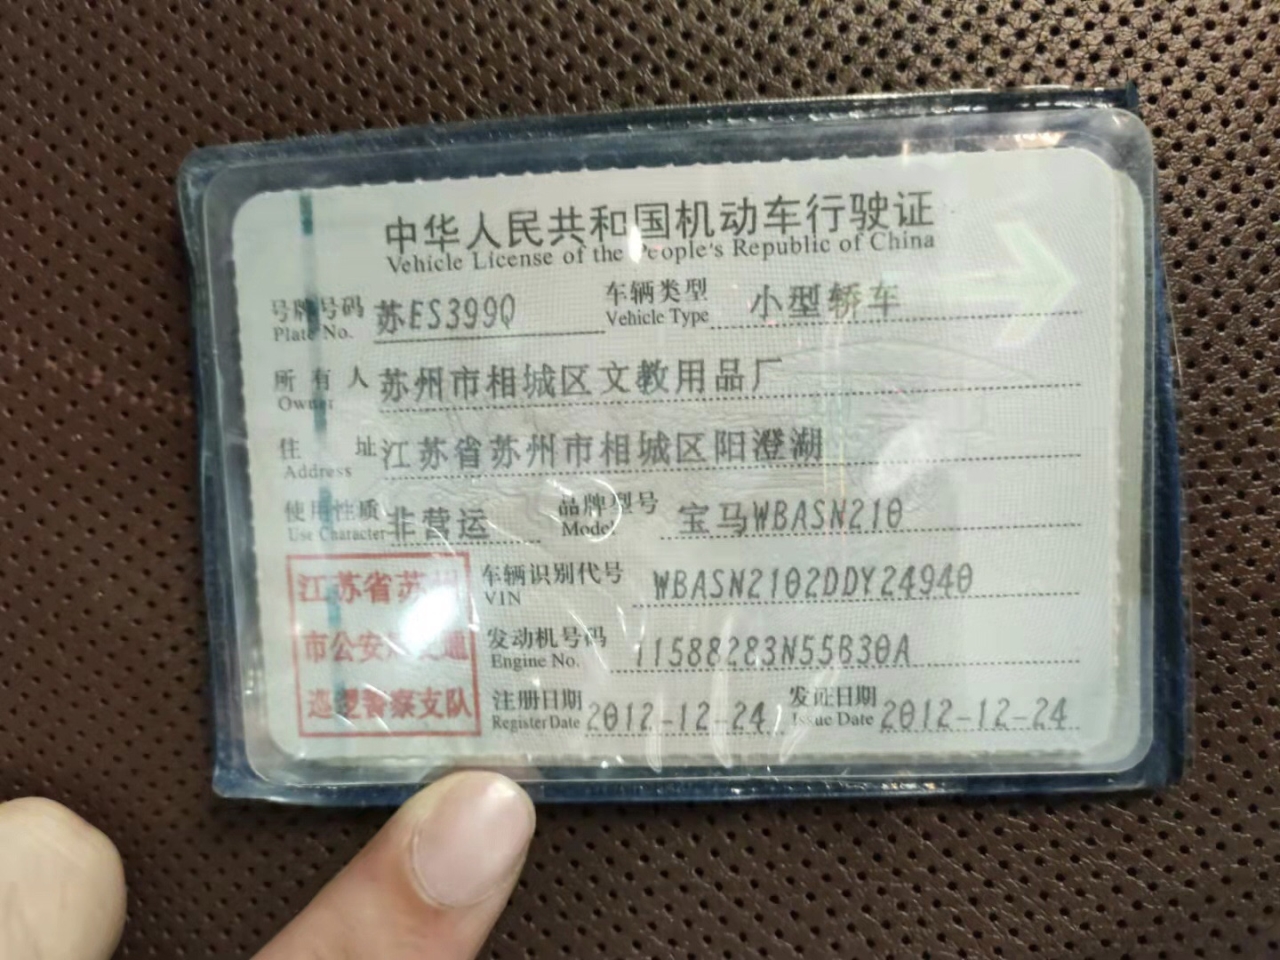 中华人民共和国机动车行驶证
Vehicle License of the People's Republic of China
号牌号码 苏ES399Q 车辆类型 小型轿车
Plate No. Vehicle Type
所有人 苏州市相城区文教用品厂
Owner
住址 江苏省苏州市相城区阳澄湖
Address
使用性质 非营运 品牌型号 宝马WBASN210
Use Character Model
江苏省苏州 车辆识别代号 WBASN2102DDY24940
VIN
市公安局交通 发动机号码 11588283N55B30A
Engine No.
巡逻警察支队 注册日期 2012-12-24 发证日期 2012-12-24
Register Date Issue Date